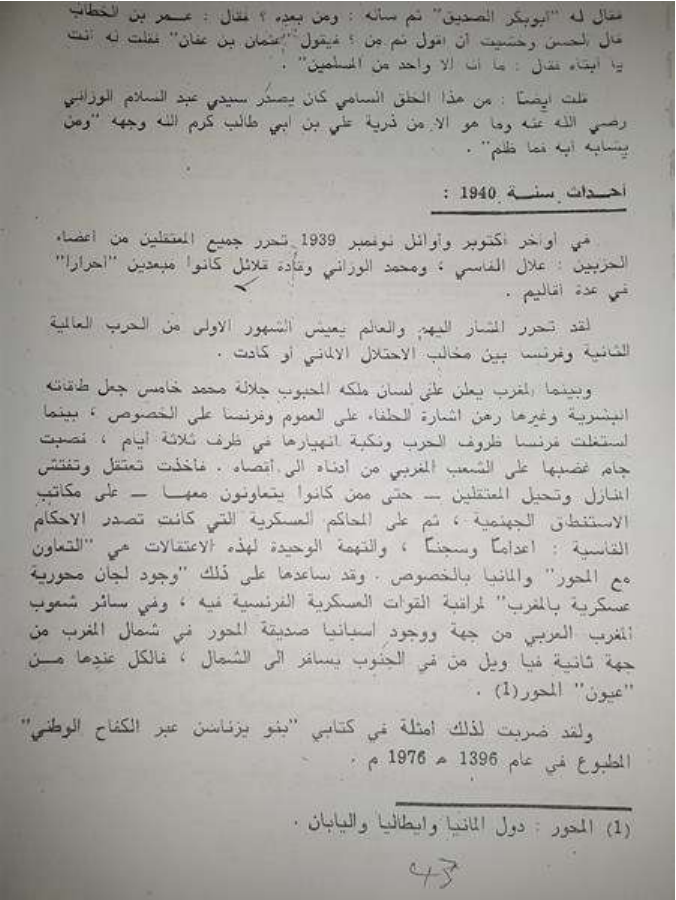 فقال له "أبوبكر الصديق" ثم سأله : ومن بعده ؟ فقال : عمر بن الخطاب
قال الحسن وخشيت أن اقول ثم من ؟ فيقول "عثمان بن عفان" فقلت له أنت
يا أبتاه فقال : ما أنا الا واحد من المسلمين" .
قلت ايضا : من هذا الخلق السامي كان يصدر سيدي عبد السلام الوزاني
رضي الله عنه وما هو الا من ذرية علي بن ابي طالب كرم الله وجهه "ومن
يشابه أبه فما ظلم" .
أحداث سنة 1940 :
في أواخر أكتوبر وأوائل نوفمبر 1939 تحرر جميع المعتقلين من اعضاء
الحزبين : علال الفاسي ، ومحمد الوزاني وقادة قلائل كانوا مبعدين "احرارا"
في عدة أقاليم .
لقد تحرر المشار اليهم والعالم يعيش الشهور الاولى من الحرب العالمية
الثانية وفرنسا بين مخالب الاحتلال الالماني أو كادت .
وبينما المغرب يعلن على لسان ملكه المحبوب جلالة محمد خامس جعل طاقاته
البشرية وغيرها رهن اشارة الحلفاء على العموم وفرنسا على الخصوص ، بينما
استغلت فرنسا ظروف الحرب ونكبة انهيارها في ظرف ثلاثة أيام ، فصبت
جام غضبها على الشعب المغربي من أدناه الى أقصاه . فأخذت تعتقل وتفتش
المنازل وتحيل المعتقلين — حتى ممن كانوا يتعاونون معها — على مكاتب
الاستنطاق الجهنمية ، ثم على المحاكم العسكرية التي كانت تصدر الاحكام
القاسية : اعداماً وسجناً ، والتهمة الوحيدة لهذه الاعتقالات هي "التعاون
مع المحور" والمانيا بالخصوص . وقد ساعدها على ذلك "وجود لجان محورية
عسكرية بالمغرب" لمراقبة القوات العسكرية الفرنسية فيه ، وفي سائر شعوب
المغرب العربي من جهة ووجود اسبانيا صديقة المحور في شمال المغرب من
جهة ثانية فيا ويل من في الجنوب يسافر الى الشمال ، فالكل عندها من
"عيون" المحور(1) .
ولقد ضربت لذلك امثلة في كتابي "بنو يزناسن عبر الكفاح الوطني"
المطبوع في عام 1396 هـ 1976 م .
(1) المحور : دول المانيا وايطاليا واليابان .
43